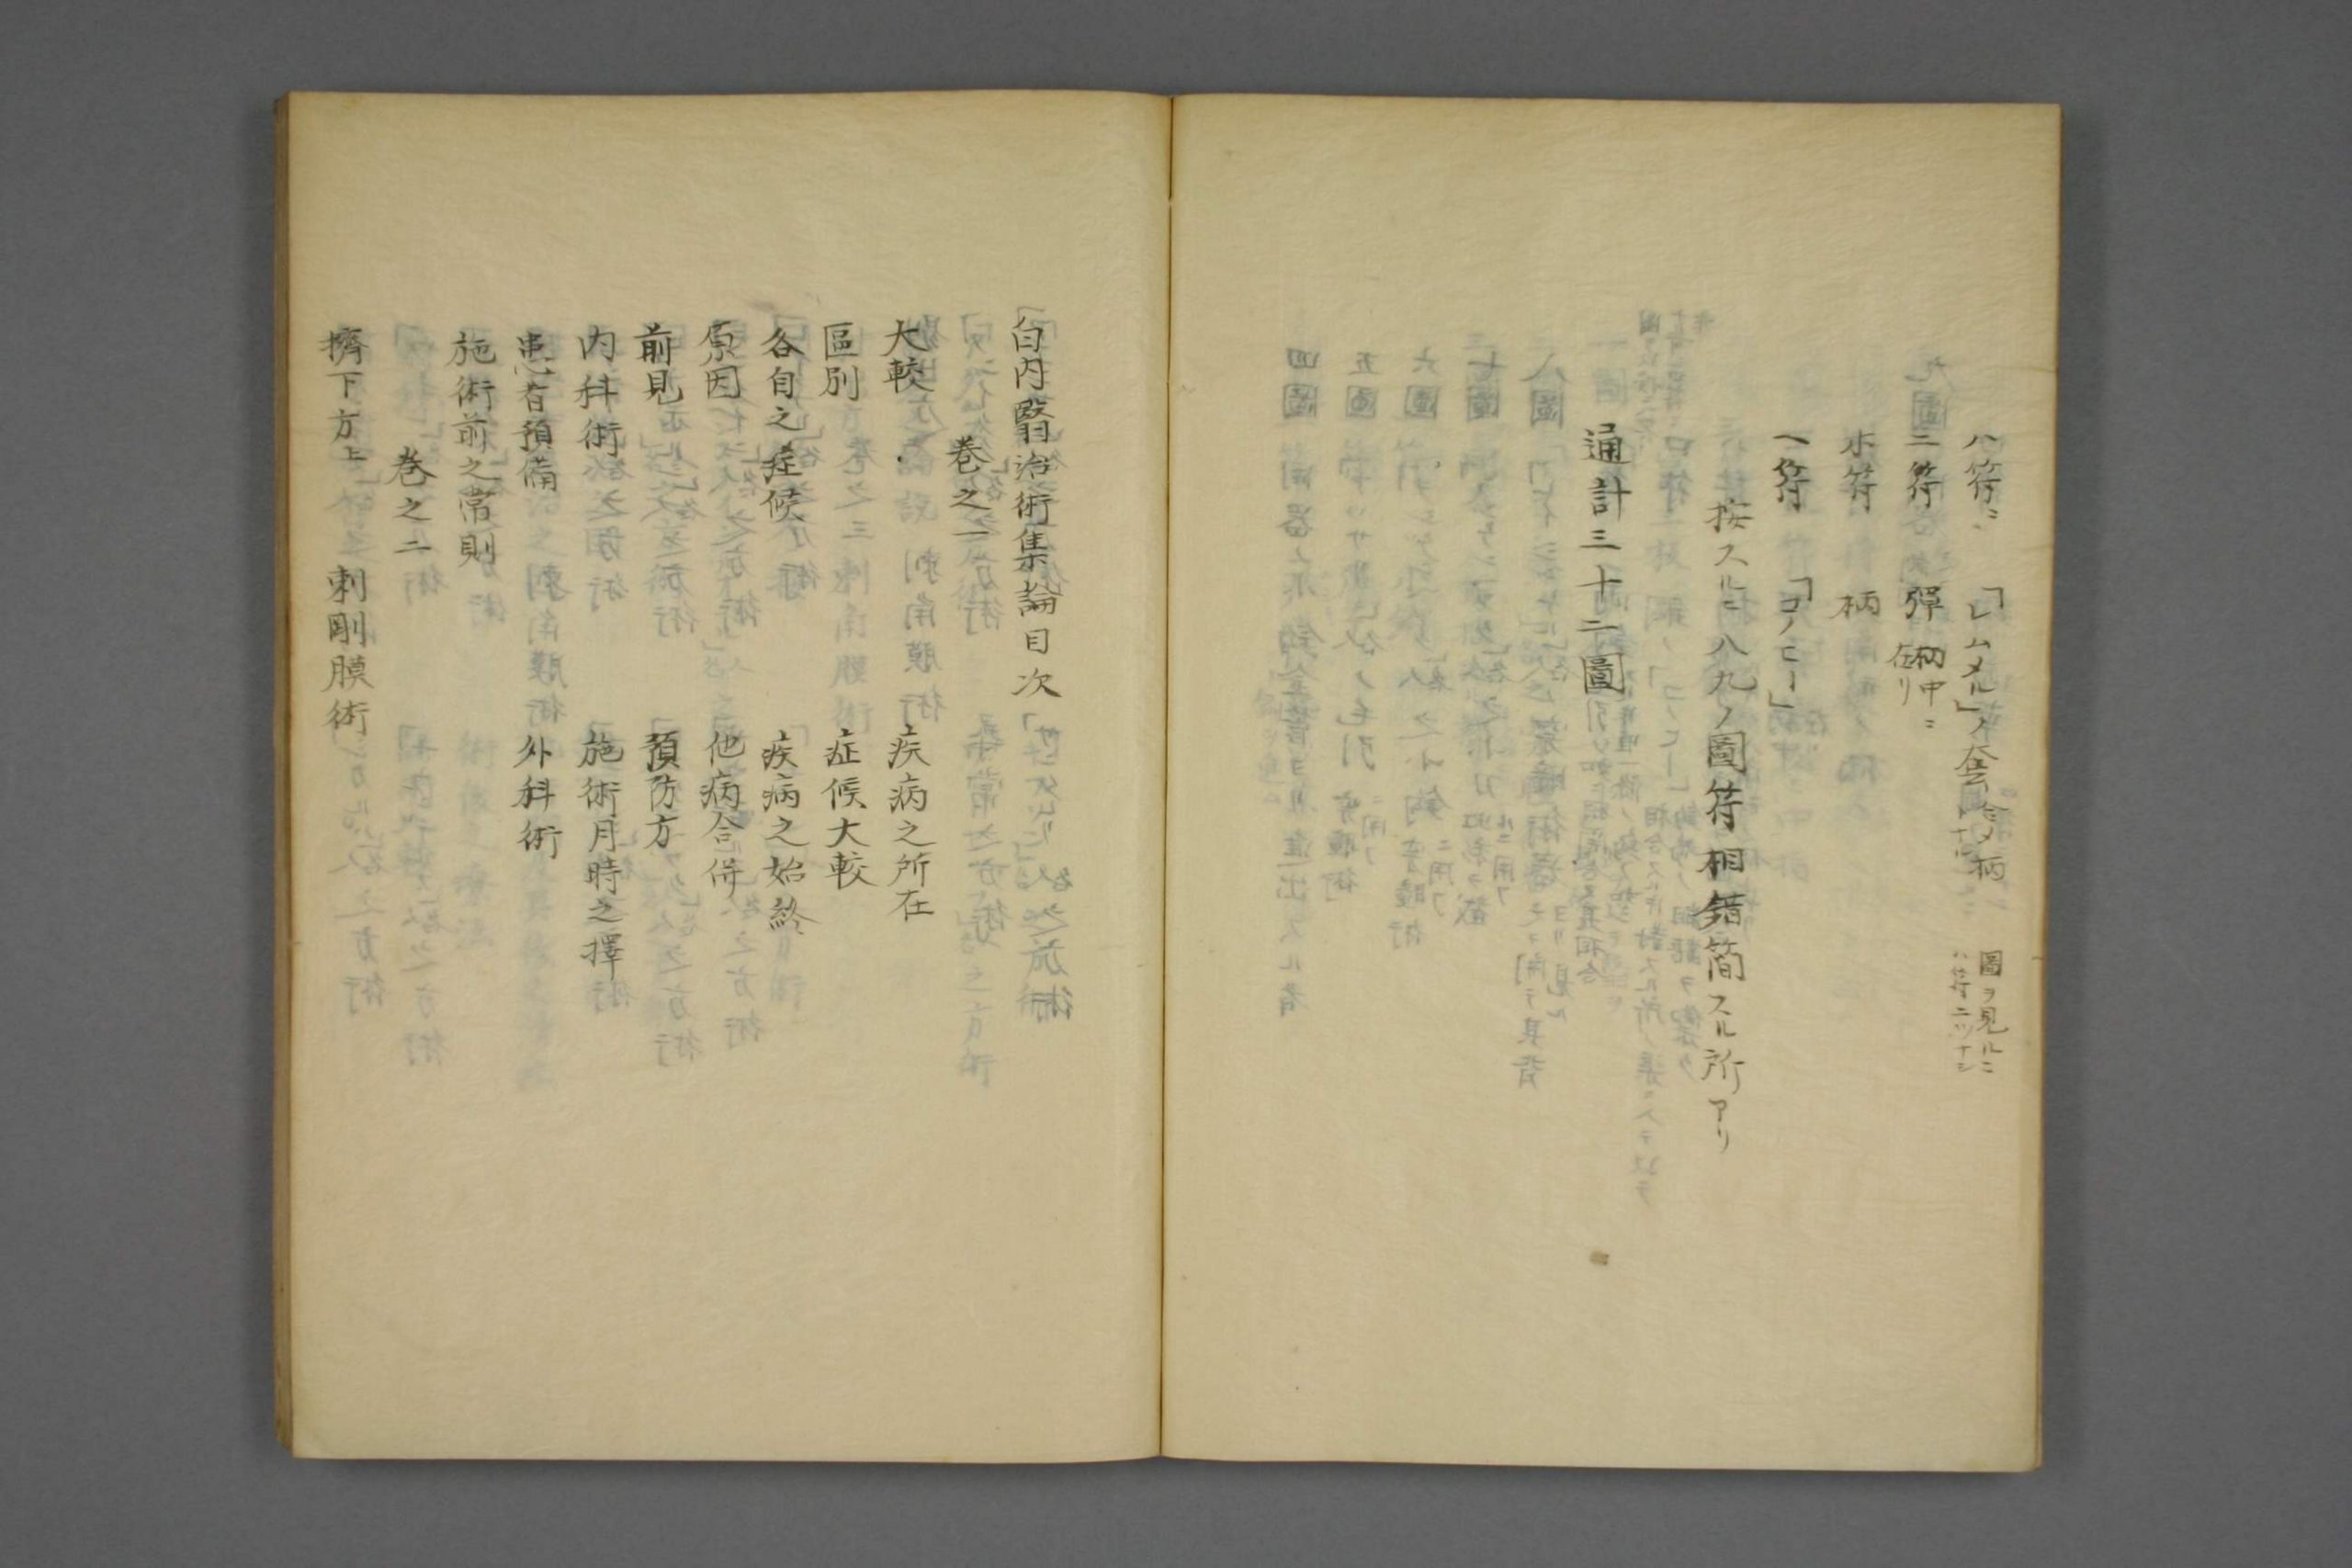 ハ符ニ 「レムメル」ノ套合ノ柄 圖ヲ見ルニ
ハ符ニツナシ
ニ符 彈 柄中ニ
在リ
ホ符 柄
ヘ符 「コノヒー」
按スルニ八九ノ圖符相錯簡スル所アリ
通計三十二圖
白内翳治術集論目次
巻之一
大較 疾病之所在
區別 症候大較
各自之症候 疾病之始終
原因 他病合併
前見 預防方
内科術 施術月時之擇
患者預備 外科術
施術前之常則
巻之二
擠下方上 刺剛膜術